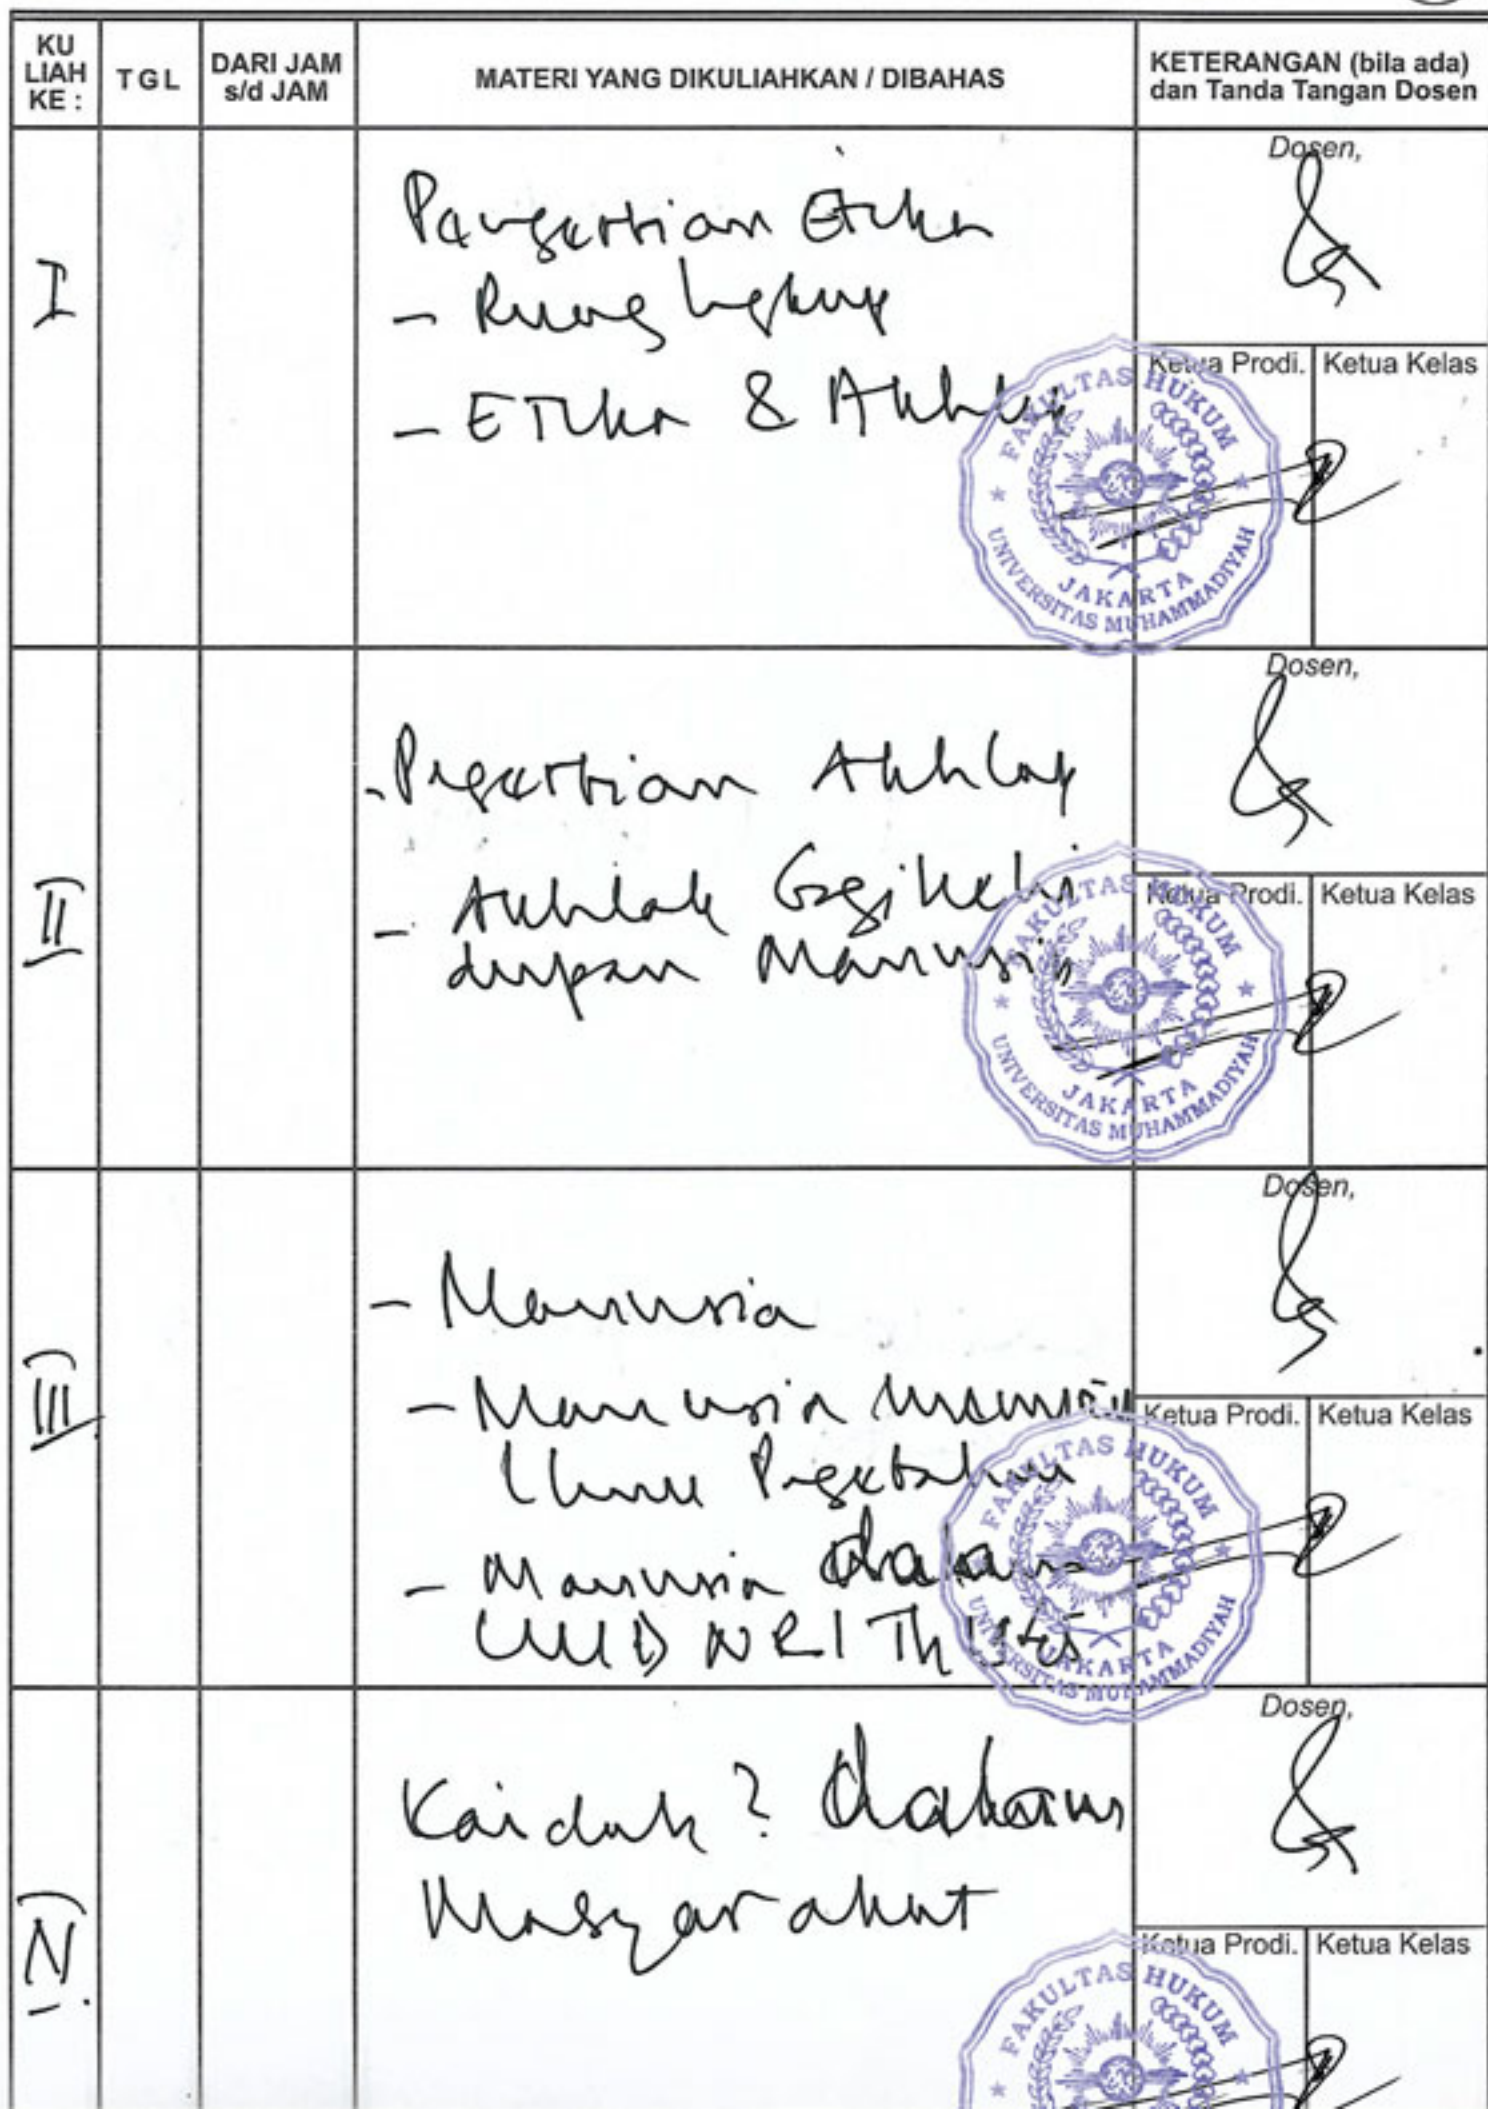 KU LIAH KE :
TGL
DARI JAM s/d JAM
MATERI YANG DIKULIAHKAN / DIBAHAS
KETERANGAN (bila ada) dan Tanda Tangan Dosen
I
Pengertian Etika
- Ruang lingkup
- Etika & Akhlak
Dosen,
Ketua Prodi.
Ketua Kelas
FAKULTAS HUKUM
UNIVERSITAS MUHAMMADIYAH
JAKARTA
II
- Pengertian Akhlak
- Akhlak bagi kehi
dupan Manusia
Dosen,
Ketua Prodi.
Ketua Kelas
FAKULTAS HUKUM
UNIVERSITAS MUHAMMADIYAH
JAKARTA
III
- Manusia
- Manusia menurut
Ilmu Pengetahuan
- Manusia dalam
UUD NRI Th 1945
Dosen,
Ketua Prodi.
Ketua Kelas
FAKULTAS HUKUM
UNIVERSITAS MUHAMMADIYAH
JAKARTA
IV
Kaidah ? dalam
Masyarakat
Dosen,
Ketua Prodi.
Ketua Kelas
FAKULTAS HUKUM